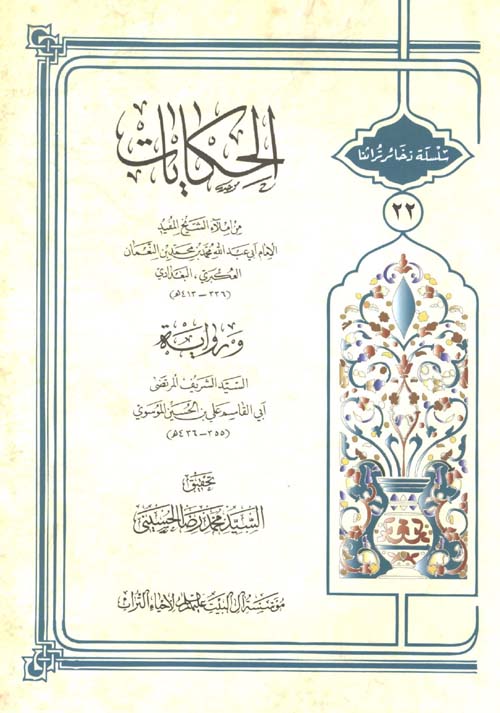 سلسلة ذخائر تراثنا
٢٢
الحكايات
من إملاء الشيخ المفيد
الإمام أبي عبد الله محمد بن محمد بن النعمان
العكبري، البغدادي
(٣٣٦ - ٤١٣ هـ)
ورواية
السيد الشريف المرتضى
أبي القاسم علي بن الحسين الموسوي
(٣٥٥ - ٤٣٦ هـ)
تحقيق
السيد محمد رضا الحسيني
مؤسسة آل البيت عليهم السلام لإحياء التراث